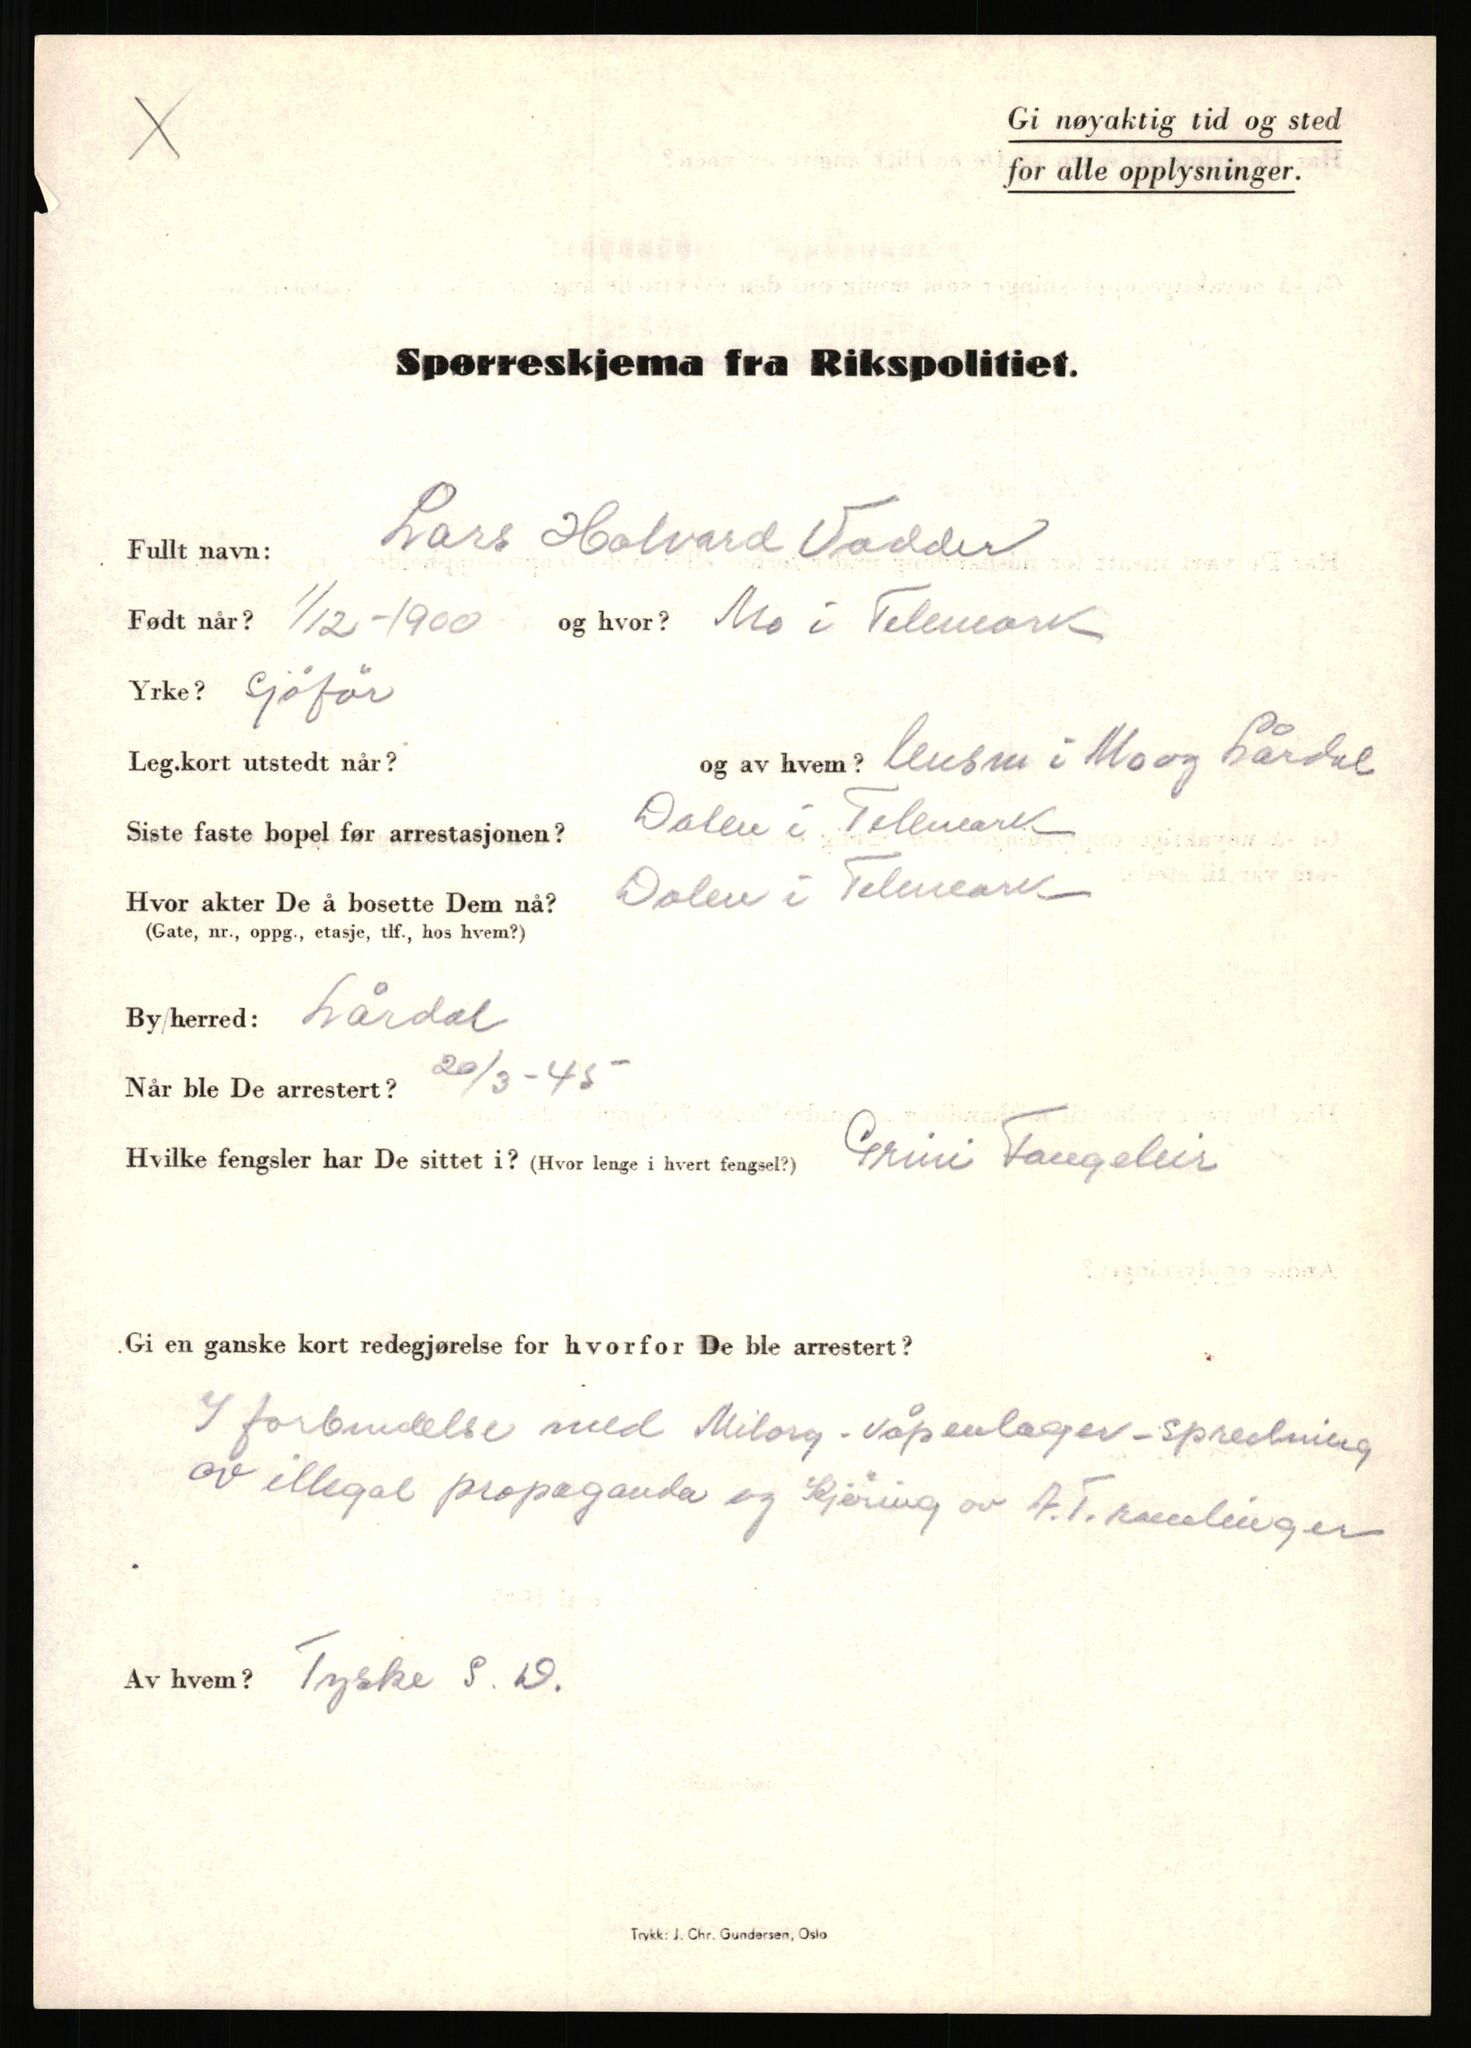 Gi nøyaktig tid og sted
for alle opplysninger.
Spørreskjema fra Rikspolitiet.
Fullt navn: Lars Halvard Vadder
Født når? 1/12-1900 og hvor? Mo i Telemark
Yrke? Sjöför
Leg.kort utstedt når? og av hvem? lensm i Mo og Lårdal
Siste faste bopel før arrestasjonen? Dalen i Telemark
Hvor akter De å bosette Dem nå? Dalen i Telemark
(Gate, nr., oppg., etasje, tlf., hos hvem?)
By/herred: Lårdal
Når ble De arrestert? 20/3-45
Hvilke fengsler har De sittet i? (Hvor lenge i hvert fengsel?) Grini Fangeleir
Gi en ganske kort redegjørelse for hvorfor De ble arrestert?
I forbindelse med Milorg - våpenlager - spredning
av illegal propaganda og Kjöring av A.T. ramlinger
Av hvem? Tyske S. D.
Trykk: J. Chr. Gundersen, Oslo